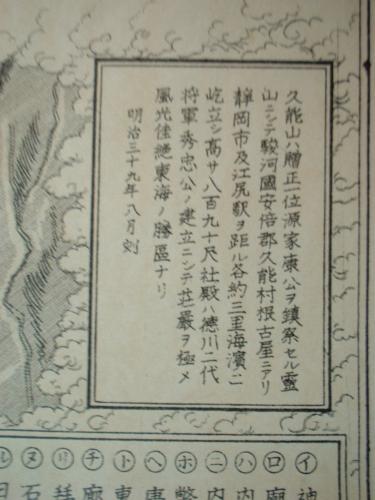 久能山ハ贈正一位源家康公ヲ鎮祭セル靈
山ニシテ駿河國安倍郡久能村根古屋ニアリ
靜岡市及江尻駅ヲ距ル各約三里海濱ニ
屹立シ高サ八百九十尺社殿ハ德川二代
将軍秀忠公ノ建立ニシテ莊嚴ヲ極メ
風光佳絶東海ノ勝區ナリ
明治三十九年八月刻
イ 神
ロ 廟
ハ 内
ニ 内
ホ 幣
ヘ 唐
ト 東
チ 廊
リ 拝
ヌ 石
ル